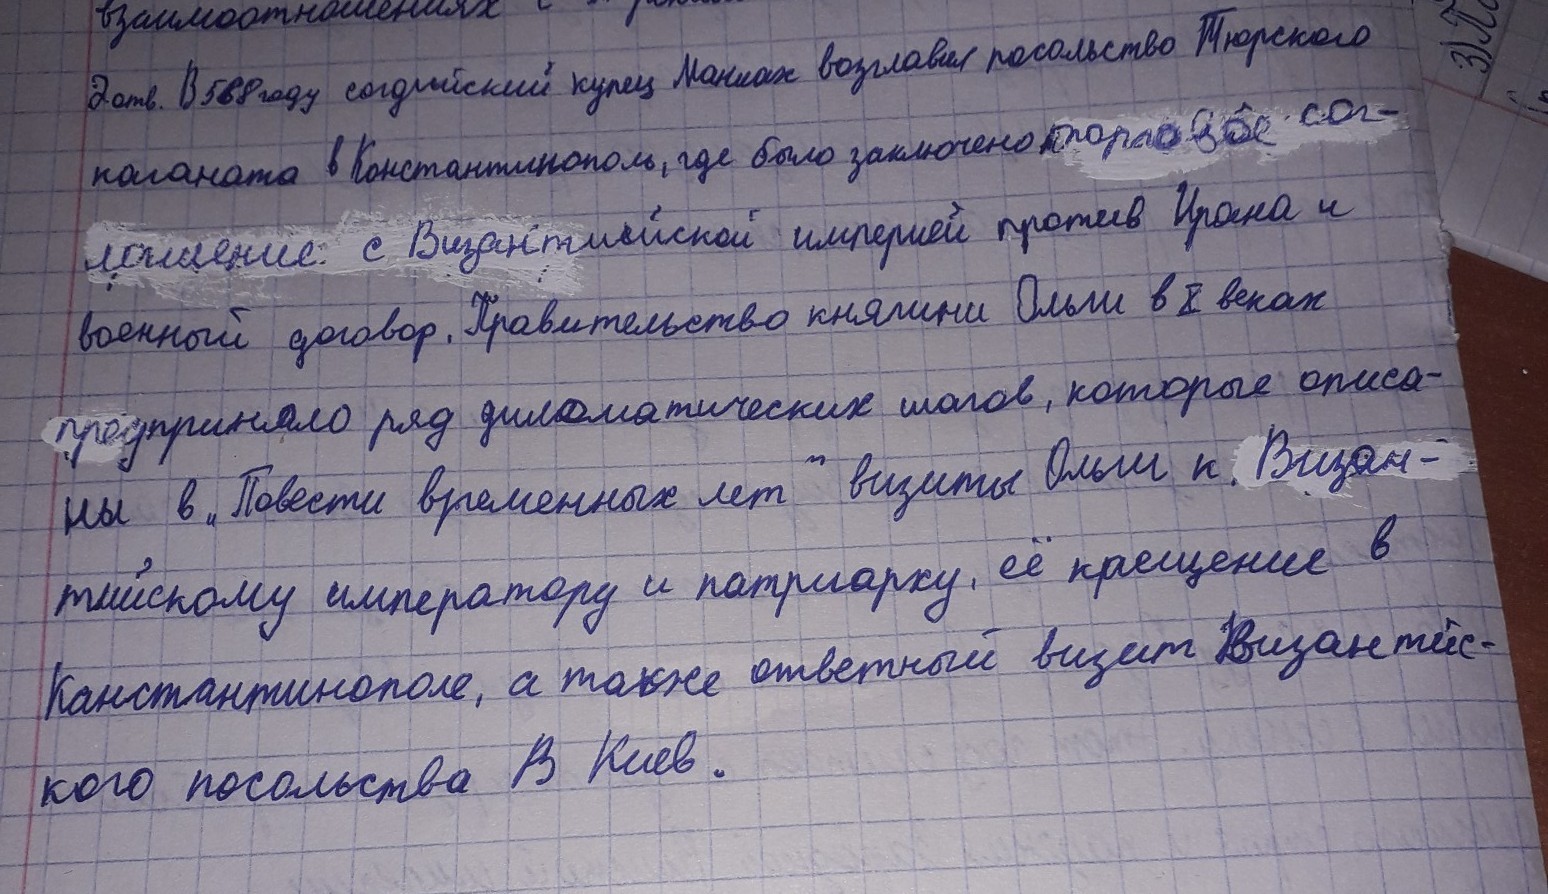 взаимоотношениях с
2 отв. В 568 году согдийский купец Маниах возглавил посольство Тюрского
каганата в Константинополь, где было заключено торговое сог-
лошение с Византийской империей против Ирана и
военный договор. Правительство княгини Ольги в X веках
предприняло ряд диломатических шагов, которые описа-
ны в „Повести временных лет" визиты Ольги к Визан-
тийскому императору и патриарху, её крещение в
Канстантинополе, а также ответный визит Византийс-
кого посольства В Киев.
3)